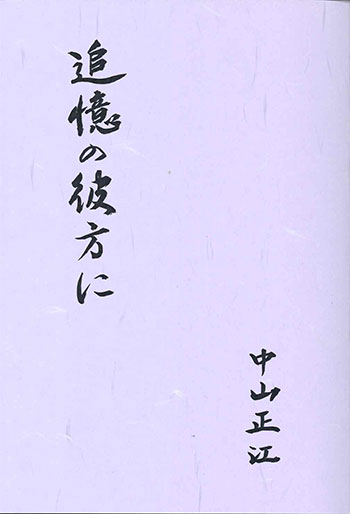 追憶の彼方に
中山正江